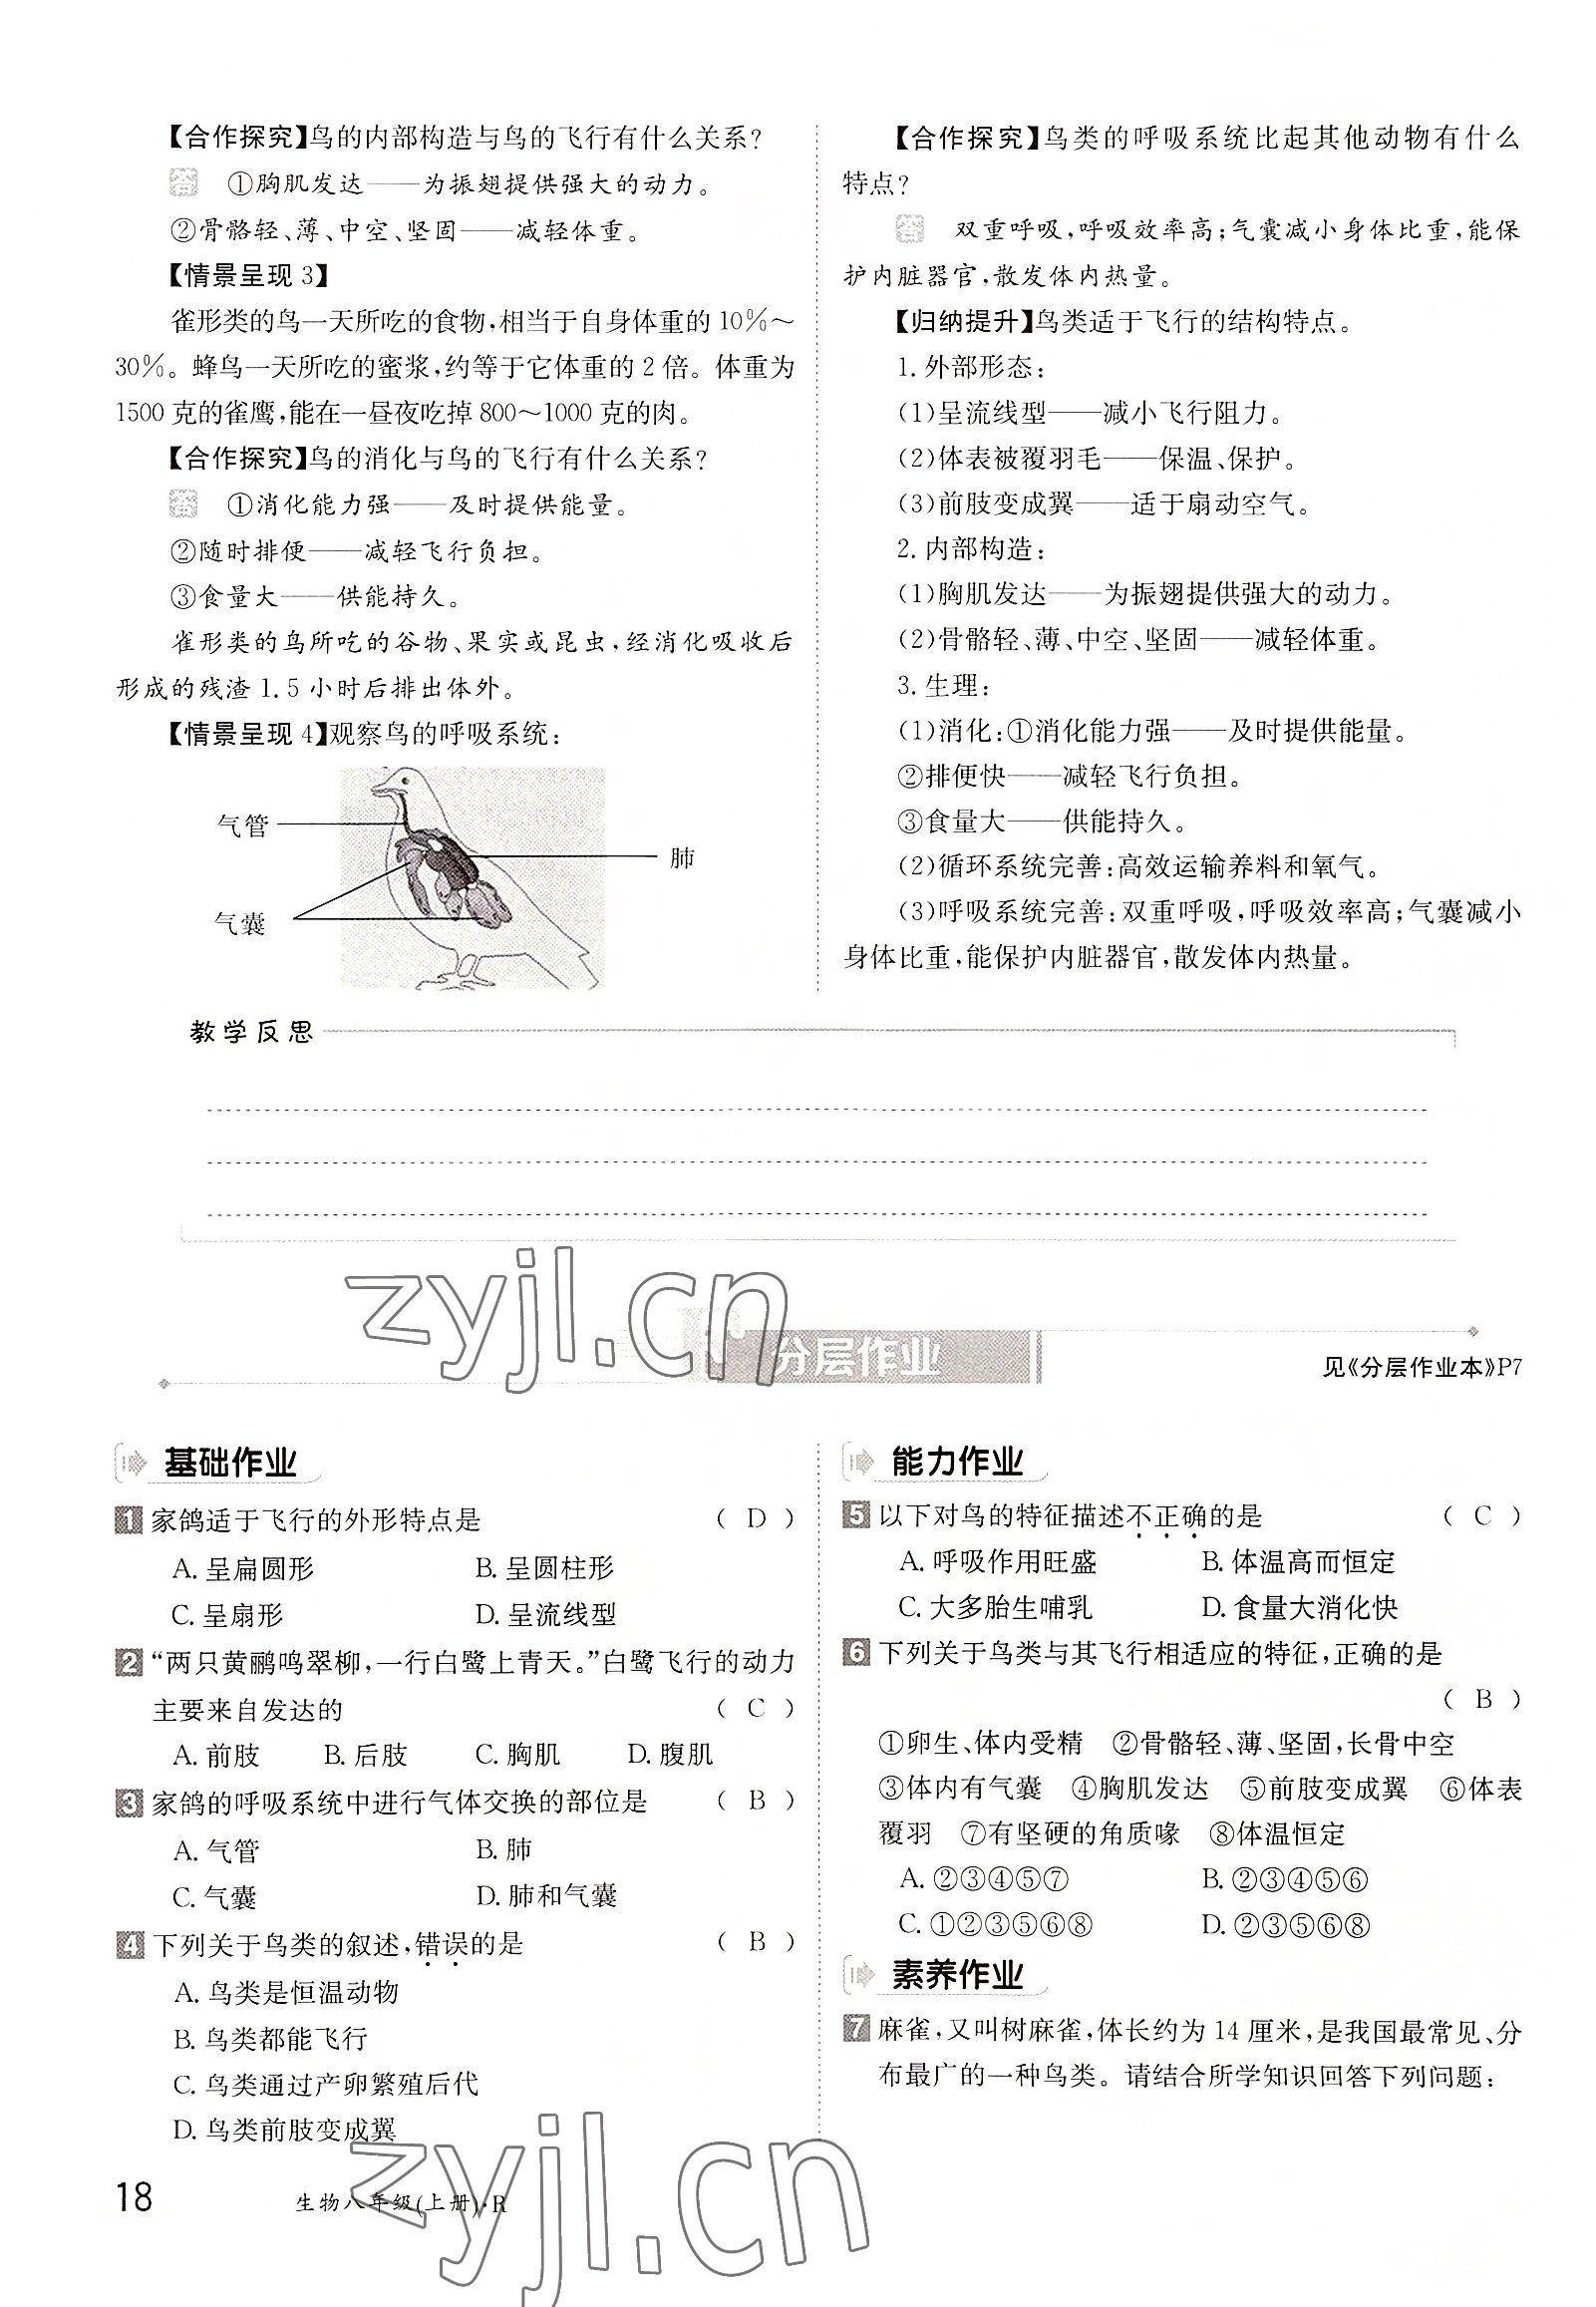 【合作探究】鸟的内部构造与鸟的飞行有什么关系?
答 ①胸肌发达——为振翅提供强大的动力。
②骨骼轻、薄、中空、坚固——减轻体重。
【情景呈现 3】
雀形类的鸟一天所吃的食物,相当于自身体重的 10%～
30%。蜂鸟一天所吃的蜜浆,约等于它体重的 2 倍。体重为
1500 克的雀鹰,能在一昼夜吃掉 800～1000 克的肉。
【合作探究】鸟的消化与鸟的飞行有什么关系?
答 ①消化能力强——及时提供能量。
②随时排便——减轻飞行负担。
③食量大——供能持久。
雀形类的鸟所吃的谷物、果实或昆虫,经消化吸收后
形成的残渣 1.5 小时后排出体外。
【情景呈现 4】观察鸟的呼吸系统:
气管
肺
气囊
【合作探究】鸟类的呼吸系统比起其他动物有什么
特点?
答 双重呼吸,呼吸效率高;气囊减小身体比重,能保
护内脏器官,散发体内热量。
【归纳提升】鸟类适于飞行的结构特点。
1. 外部形态:
(1)呈流线型——减小飞行阻力。
(2)体表被覆羽毛——保温、保护。
(3)前肢变成翼——适于扇动空气。
2. 内部构造:
(1)胸肌发达——为振翅提供强大的动力。
(2)骨骼轻、薄、中空、坚固——减轻体重。
3. 生理:
(1)消化:①消化能力强——及时提供能量。
②排便快——减轻飞行负担。
③食量大——供能持久。
(2)循环系统完善:高效运输养料和氧气。
(3)呼吸系统完善:双重呼吸,呼吸效率高;气囊减小
身体比重,能保护内脏器官,散发体内热量。
教学反思
zyjl.cn
分层作业
见《分层作业本》P7
基础作业
1 家鸽适于飞行的外形特点是 ( D )
A. 呈扁圆形 B. 呈圆柱形
C. 呈扇形 D. 呈流线型
2 “两只黄鹂鸣翠柳,一行白鹭上青天。”白鹭飞行的动力
主要来自发达的 ( C )
A. 前肢 B. 后肢 C. 胸肌 D. 腹肌
3 家鸽的呼吸系统中进行气体交换的部位是 ( B )
A. 气管 B. 肺
C. 气囊 D. 肺和气囊
4 下列关于鸟类的叙述,错误的是 ( B )
A. 鸟类是恒温动物
B. 鸟类都能飞行
C. 鸟类通过产卵繁殖后代
D. 鸟类前肢变成翼
能力作业
5 以下对鸟的特征描述不正确的是 ( C )
A. 呼吸作用旺盛 B. 体温高而恒定
C. 大多胎生哺乳 D. 食量大消化快
6 下列关于鸟类与其飞行相适应的特征,正确的是
( B )
①卵生、体内受精 ②骨骼轻、薄、坚固,长骨中空
③体内有气囊 ④胸肌发达 ⑤前肢变成翼 ⑥体表
覆羽 ⑦有坚硬的角质喙 ⑧体温恒定
A. ②③④⑤⑦ B. ②③④⑤⑥
C. ①②③⑤⑥⑧ D. ②③⑤⑥⑧
素养作业
7 麻雀,又叫树麻雀,体长约为 14 厘米,是我国最常见、分
布最广的一种鸟类。请结合所学知识回答下列问题:
18 生物八年级(上册)·R
zyjl.cn